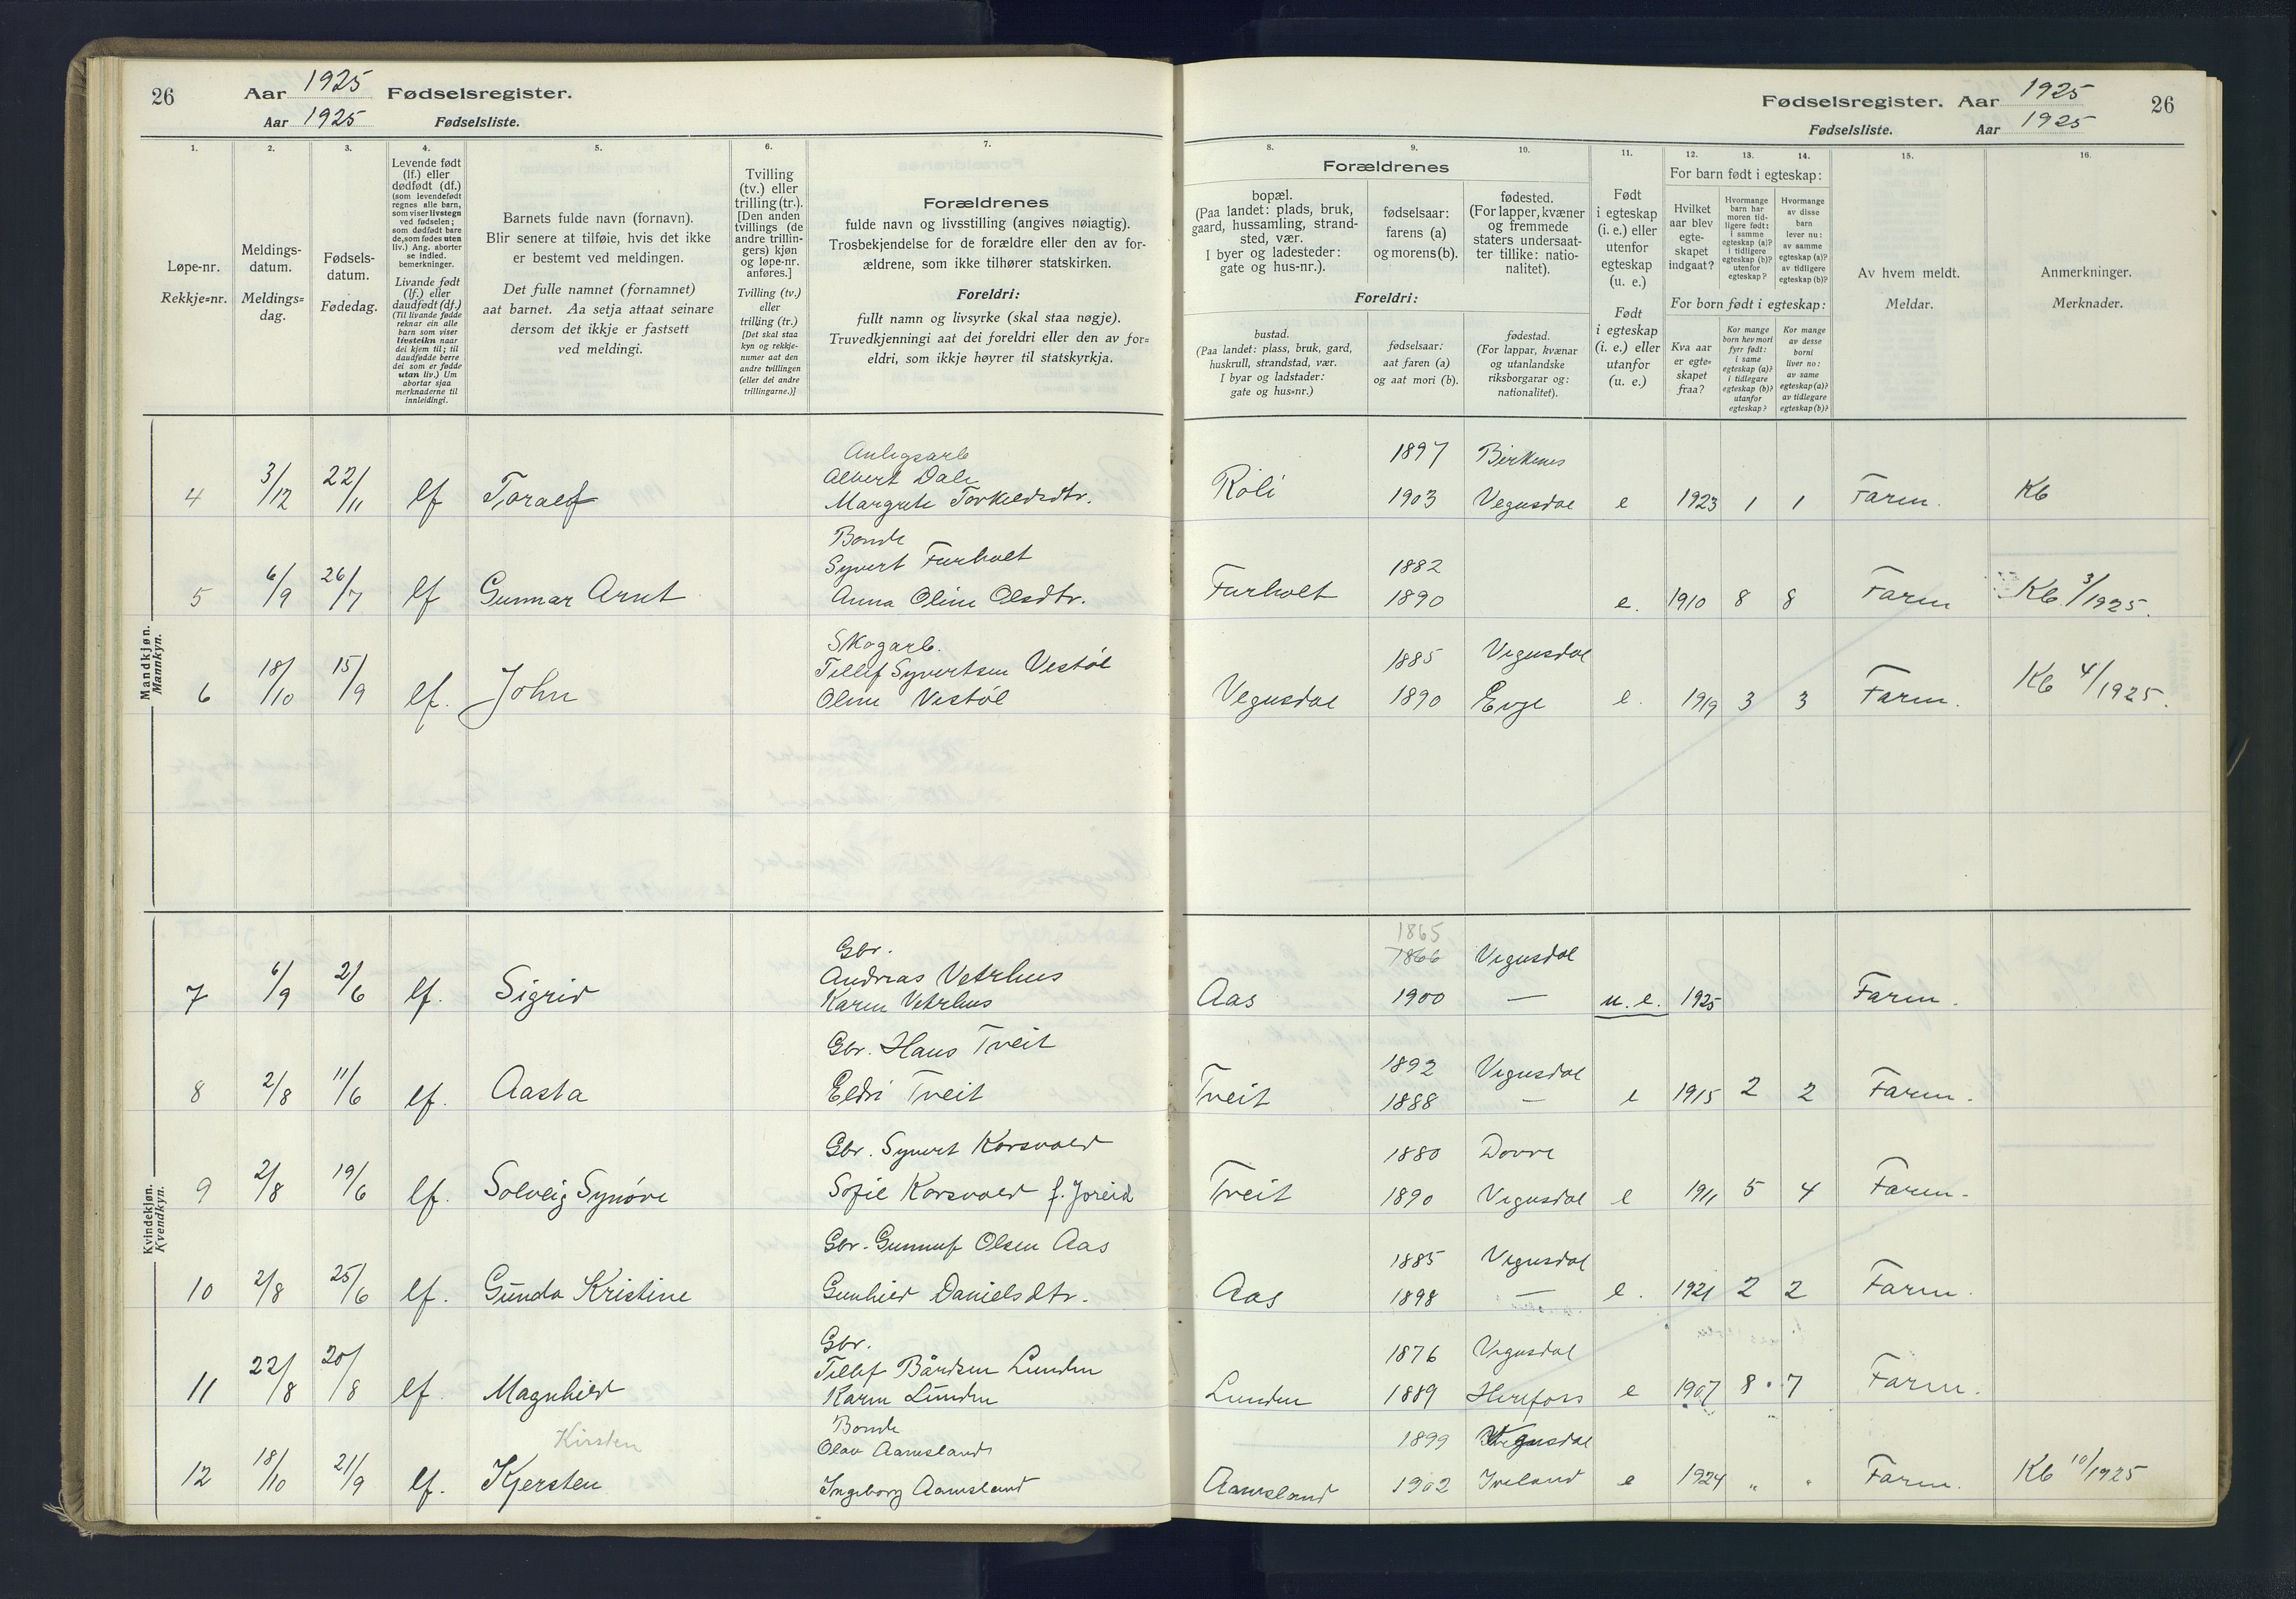 26
Aar 1925 Fødselsregister.
Aar 1925 Fødselsliste.
Fødselsregister. Aar 1925
Fødselsliste. Aar 1925
26
1. 2. 3. 4. 5. 6. 7.
Løpe-nr.
Rekkje=nr.
Meldings-
datum.
Meldings=
dag.
Fødsels-
datum.
Fødedag.
Levende født
(lf.) eller
dødfødt (df.)
(som levendefødt
regnes alle barn,
som viser livstegn
ved fødselen;
som dødfødt bare
de, som fødes uten
liv.) Ang. aborter
se indled.
bemerkninger.
Livande født
(lf.) eller
daudfødt (df.)
(Til livande fødde
reknar ein alle
barn som viser
livsteikn naar
dei kjem til; til
daudfødde berre
dei som er fødde
utan liv.) Um
abortar sjaa
merknaderne til
innleidingi.
Barnets fulde navn (fornavn).
Blir senere at tilføie, hvis det ikke
er bestemt ved meldingen.
Det fulle namnet (fornamnet)
aat barnet. Aa setja attaat seinare
dersom det ikkje er fastsett
ved meldingi.
Tvilling
(tv.) eller
trilling (tr.).
[Den anden
tvillings (de
andre trillin-
gers) kjøn
og løpe-nr.
anføres.]
Tvilling (tv.)
eller
trilling (tr.)
[Det skal staa
kyn og rekkje-
numer aat den
andre tvillingen
(eller dei andre
trillingarne.)]
Forældrenes
fulde navn og livsstilling (angives nøiagtig).
Trosbekjendelse for de forældre eller den av for-
ældrene, som ikke tilhører statskirken.
Foreldri:
fullt namn og livsyrke (skal staa nøgje).
Truvedkjenningi aat dei foreldri eller den av for=
eldri, som ikkje høyrer til statskyrkja.
8. 9. 10. 11. 12. 13. 14. 15. 16.
Forældrenes
bopæl.
(Paa landet: plads, bruk,
gaard, hussamling, strand-
sted, vær.
I byer og ladesteder:
gate og hus-nr.).
fødselsaar:
farens (a)
og morens (b).
fødested.
(For lapper, kvæner
og fremmede
staters undersaat-
ter tillike: natio-
nalitet).
Foreldri:
bustad.
(Paa landet: plass, bruk, gard,
huskrull, strandstad, vær.
I byar og ladstader:
gate og hus=nr.)
fødselsaar:
aat faren (a)
og aat mori (b).
fødestad.
(For lappar, kvænar
og utanlandske
riksborgarar og:
nationalitet).
Født
i egteskap
(i. e.) eller
utenfor
egteskap
(u. e.)
Født
i egteskap
(i. e.) eller
utanfor
(u. e.)
For barn født i egteskap:
Hvilket
aar blev
egte-
skapet
indgaat?
Hvormange
barn har
moren tid-
ligere født:
i samme
egteskap (a)?
i tidligere
egteskap (b)?
utenfor
egteskap?
Hvormange
av disse
barn
lever nu:
av samme
egteskap (a)?
av tidligere
egteskap (b)?
For born født i egteskap:
Kva aar
er egte=
skapet
fraa?
Kor mange
born hev mori
fyrr født:
i same
egteskap (a)?
i tidlegare
egteskap (b)?
utanfor
egteskap?
Kor mange
av desse
borni
liver no:
av same
egteskap (a)?
av tidlegare
egteskap (b)?
Av hvem meldt.
Meldar.
Anmerkninger.
Merknader.
Mandkjøn.
Mannkyn.
Anlegsarb 1897 Birkenes
Albert Dale
4 3/12 22/11 lf Toralf Margrete Torkildsdtr. Röli 1903 Vegusdal e 1923 1 1 Faren. Kb
Bonde
Syvert Furholt 1882
5 6/9 26/7 lf Gunnar Arnt Anna Oline Olsdtr. Furholt 1890 e. 1910 8 8 Faren Kb. 3/1925.
Skogarb.
Tellef Syvertsen Vestöl 1885 Vegusdal
6 18/10 15/9 lf. John Oline Vestöl Vegusdal 1890 Evje e. 1919 3 3 Faren. Kb 4/1925.
Kvindekjøn.
Kvendkyn.
1865
Gbr. 1866 Vegusdal
Andreas Vetrhus
7 6/9 2/6 lf. Sigrid Karen Vetrhus Aas 1900 — u. e. 1925 Faren.
Gbr. Hans Tveit 1892 Vegusdal
8 2/8 11/6 lf. Aasta Eldri Tveit Tveit 1888 — e 1915 2 2 Faren.
Gbr. Syvert Korsvold 1880 Dovre
9 2/8 19/6 lf. Solveig Synöve Sofie Korsvold f. Joreid Tveit 1890 Vegusdal e 1911 5 4 Faren.
Gbr. Gunnuf Olsen Aas 1885 Vegusdal
10 2/8 25/6 lf. Gunda Kristine Gunhild Danielsdtr. Aas 1898 — e. 1921 2 2 Faren.
Gbr. 1876 Vegusdal
Tellef Bårdsen Lunden
11 22/8 20/8 lf. Magnhild Karen Lunden Lunden 1889 Herefoss e 1907 8 7 Faren.
Kirsten Bonde
Olav Aamsland 1899 Vegusdal
12 18/10 21/9 lf. Kjersten Ingeborg Aamsland Aamsland 1902 Iveland e 1924 " " Faren. Kb 10/1925